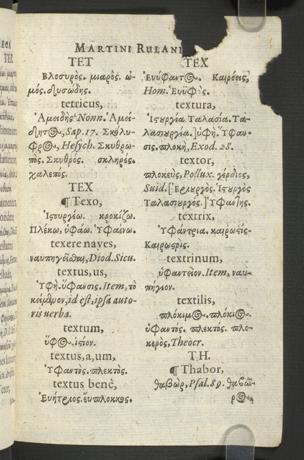 MARTINI RULAN
TET
Βλοσυρὸς. μιαρὸς. ὠ-
μός. λυσώδης.
tetricus,
Ἀμειδὴς Nonn. Ἀμεί-
Sap. 17. Σκυλυ-
Hesych. Σκυθρω-
πός. Σκυθρός. σκληρός.
χαλεπός.
TEX
¶ Texo,
Ἱστουργέω. κροκίζω.
Πλέκω. ὑφάω. Ὑφαίνω.
texere naves,
ναυπηγεῖσθαι, Diod. Sicu.
textus, us,
Ὑφὴ. ὕφανσις. Item, τὸ
κείμενον, id est, ipsa auto-
ris verba.
textum,
ὑφή. ἱστίον.
textus, a, um,
Ὑφαντὸς. πλεκτός.
textus benè,
Εὐήτριος. εὔπλοκος.
TEX
Εὐΰφαντος. Καιρόεις,
Hom. Εὐϋφὴς.
textura,
Ἱστουργία. Ταλασία. Τα-
λασιουργία. ὑφή. Ὕφαν-
σις. πλοκὴ, Exod. 28.
textor,
πλοκεὺς, Pollux. γέρδιος,
Suid. [Ἐριουργός. Ἱστουργὸς
Ταλασιουργός.] Ὑφάντης.
textrix,
Ὑφάντρια. καιρωστὶς.
Καιρωστρίς.
textrinum,
ὑφαντεῖον. Item, ναυ-
πήγιον.
textilis,
πλόκιμος. πλόκιος.
ὑφαντὸς. πλεκτὸς. πλο-
κερὸς, Theocr.
TH.
¶ Thabor,
θαβὼρ, Psal. 89. θαβώ-
ριος